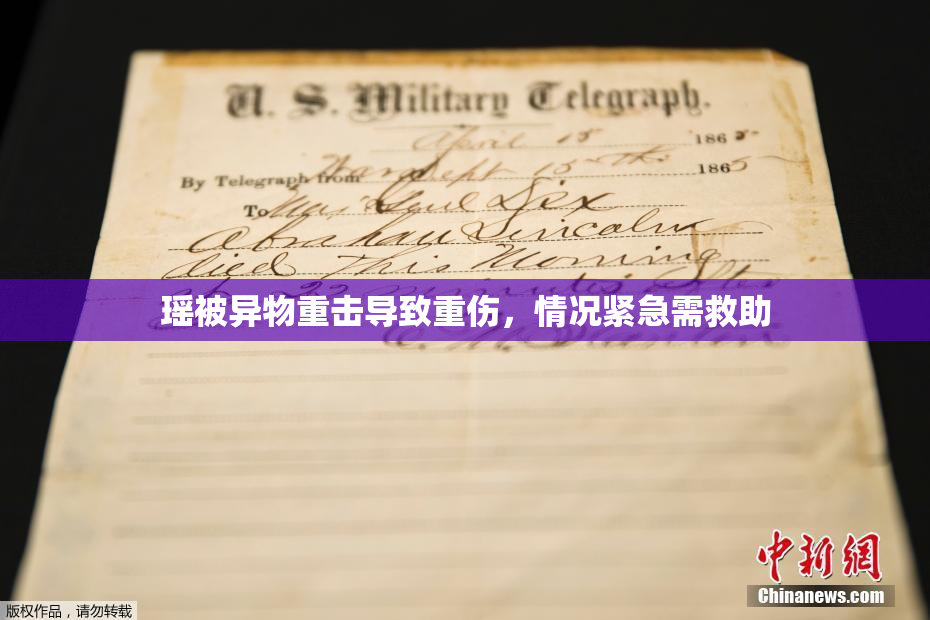 U. S. Military Telegraph.
April 15 1865
By Telegraph from War Dept 15th 1865
To Maj Genl Dix
Abraham Lincoln
died This Morning
at 22 minutes after
瑶被异物重击导致重伤，情况紧急需救助
中新网
Chinanews.com
版权作品，请勿转载